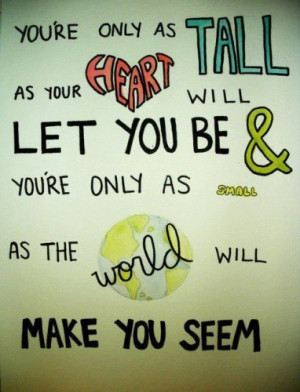 YOU'RE ONLY AS TALL
AS YOUR HEART WILL
LET YOU BE &
YOU'RE ONLY AS SMALL
AS THE world WILL
MAKE YOU SEEM